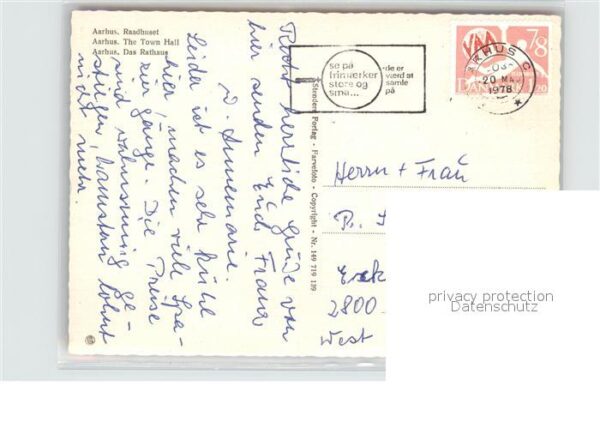 Aarhus. Raadhuset
Aarhus. The Town Hall
Aarhus. Das Rathaus
se på
frimærker
store og
små...
de er
værd at
samle
på
AARHUS C
20 MAJ
1978
78
DANMARK
120
Stenders Forlag - Farvefoto - Copyright - Nr. 149 719 139
Recht herzliche Grüße von
hier senden Euch Franz
u. Annemarie.
Leider ist es sehr kühl
hier, machen viele Spa-
ziergänge. Die Preise
sind wahnsinnig ge-
stiegen, Dänemark lohnt
nicht mehr.
Herrn + Frau
2800
West
privacy protection
Datenschutz